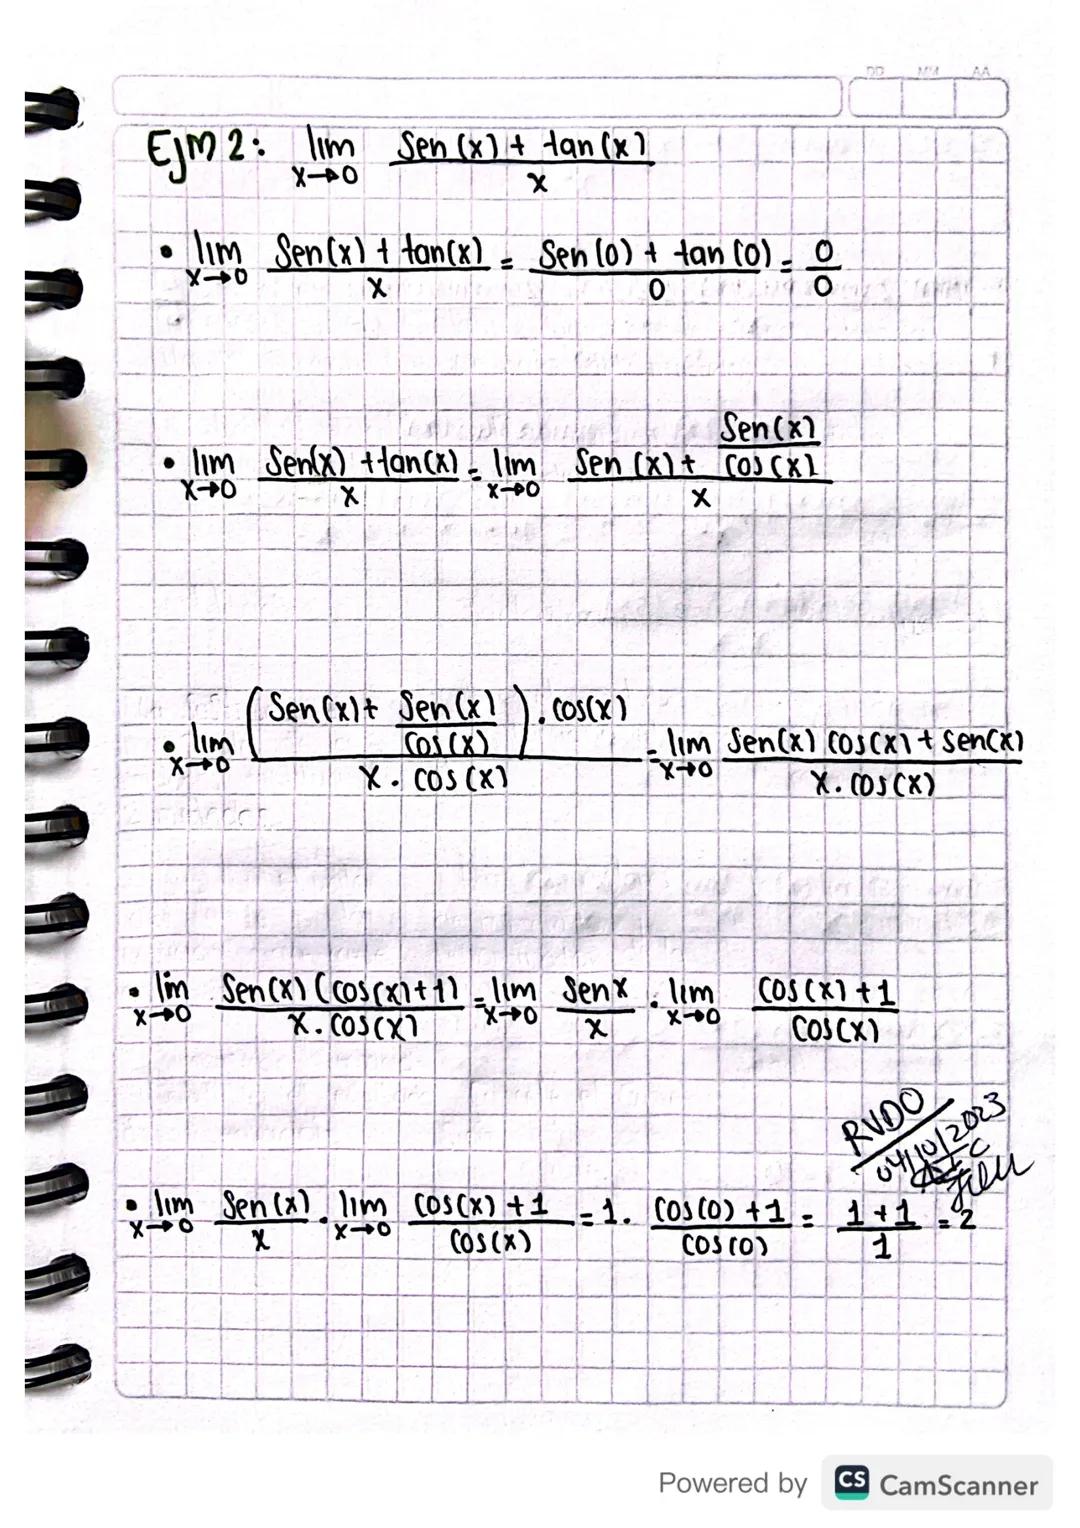 DD MM AA
Ejm 2: lim x→0 (Sen (x) + tan (x)) / x
• lim x→0 (Sen(x) + tan(x)) / x = (Sen (0) + tan (0)) / 0 = 0/0
• lim x→0 (Sen(x) + tan(x)) / x = lim x→0 (Sen (x) + Sen(x)/cos(x)) / x
• lim x→0 ((Sen(x) + Sen(x)/cos(x)) . cos(x)) / (x . cos(x)) = lim x→0 (Sen(x) cos(x) + Sen(x)) / (x . cos(x))
• lim x→0 (Sen(x) (cos(x)+1)) / (x . cos(x)) = lim x→0 Sen x / x . lim x→0 (cos(x) + 1) / cos(x)
RVDO
04/10/2023
• lim x→0 Sen(x) / x . lim x→0 (cos(x) + 1) / cos(x) = 1 . (cos(0) + 1) / cos(0) = (1 + 1) / 1 = 2
Powered by CS CamScanner